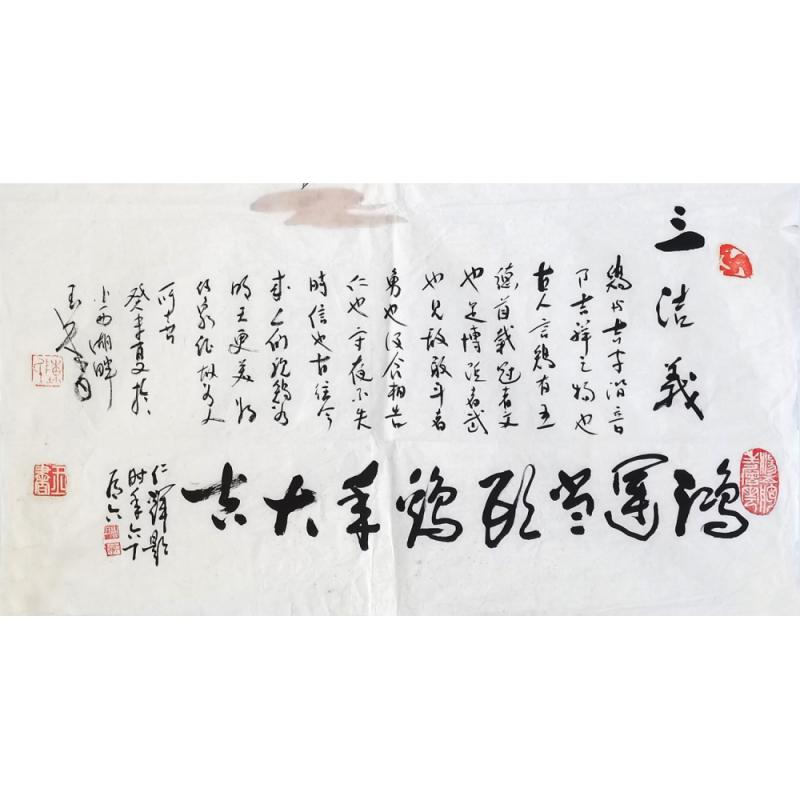 三洁义
鸡与吉字谐音
乃吉祥之物也
古人言鸡有五
德首戴冠者文
也足博距者武
也见敌敢斗者
勇也得食相告
仁也守夜不失
时信也古往今
来人们视鸡为
癸未夏于
小西湖畔
鸿运当头鸡年大吉
仁辉题
时年六十
有六